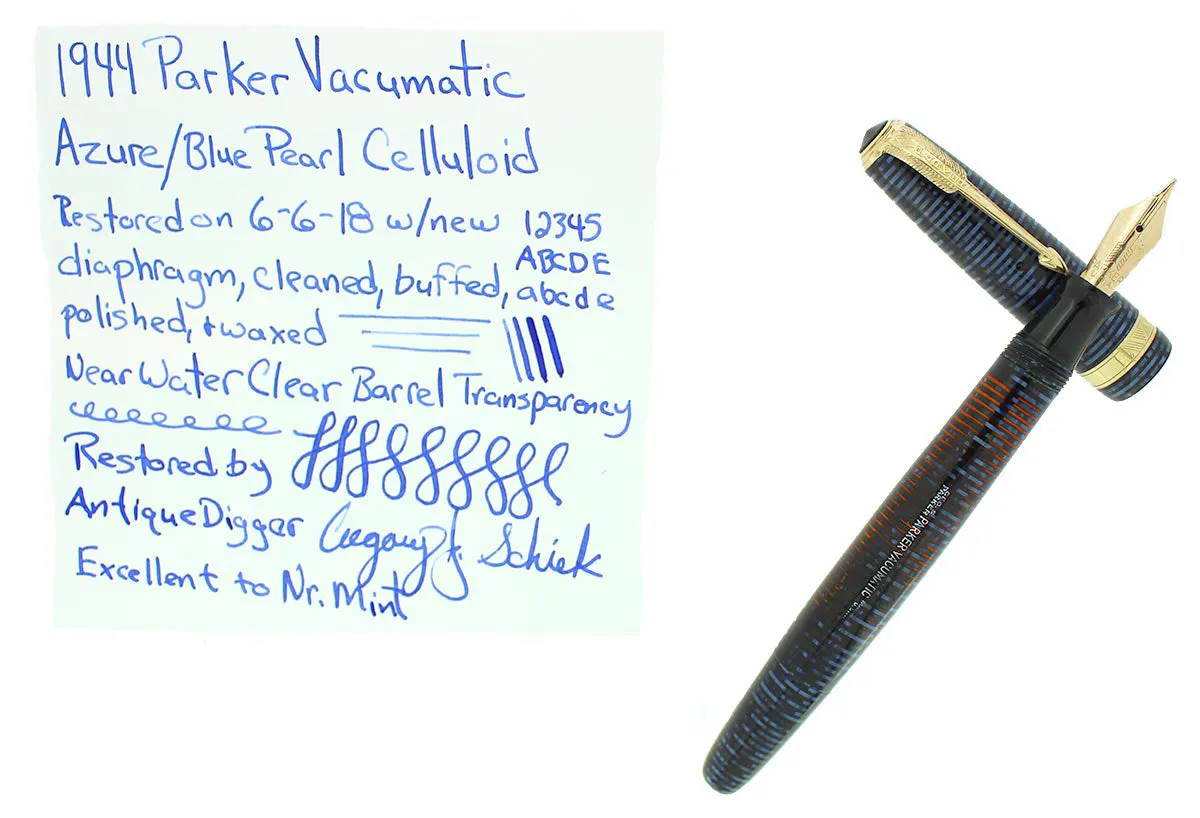 1944 Parker Vacumatic
Azure/Blue Pearl Celluloid
Restored on 6-6-18 w/new 12345
diaphragm, cleaned, buffed, ABCDE
abcde
polished, + waxed
Near Water Clear Barrel Transparency
Restored by
Antique Digger Gregory J. Schiek
Excellent to Nr. Mint
PARKER VACUMATIC